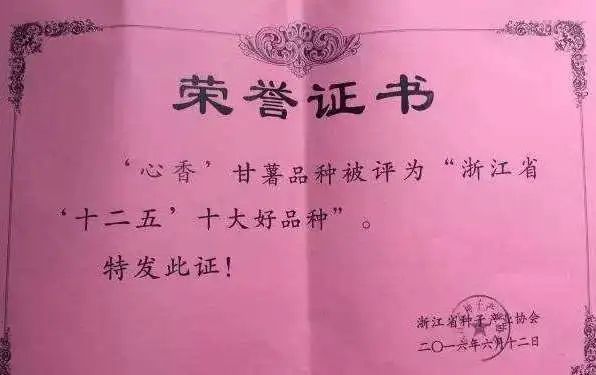 荣誉证书
‘心香’甘薯品种被评为“浙江省
‘十二五’十大好品种”。
特发此证！
浙江省种子产业协会
二〇一六年六月十二日